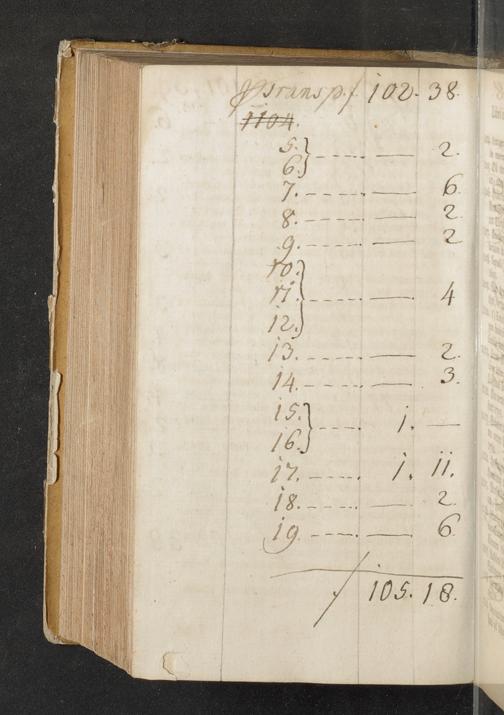 Transp. 102. 38.
1104.
5.
6. } ---- — 2.
7. ---- — 6.
8. ---- — 2.
9. ---- — 2
10.
11. } ---- — 4
12.
13. ---- — 2.
14. ---- — 3.
15.
16. } ---- 1. —
17. ---- 1. 11.
18. ---- — 2.
19 ---- — 6.
105. 18.